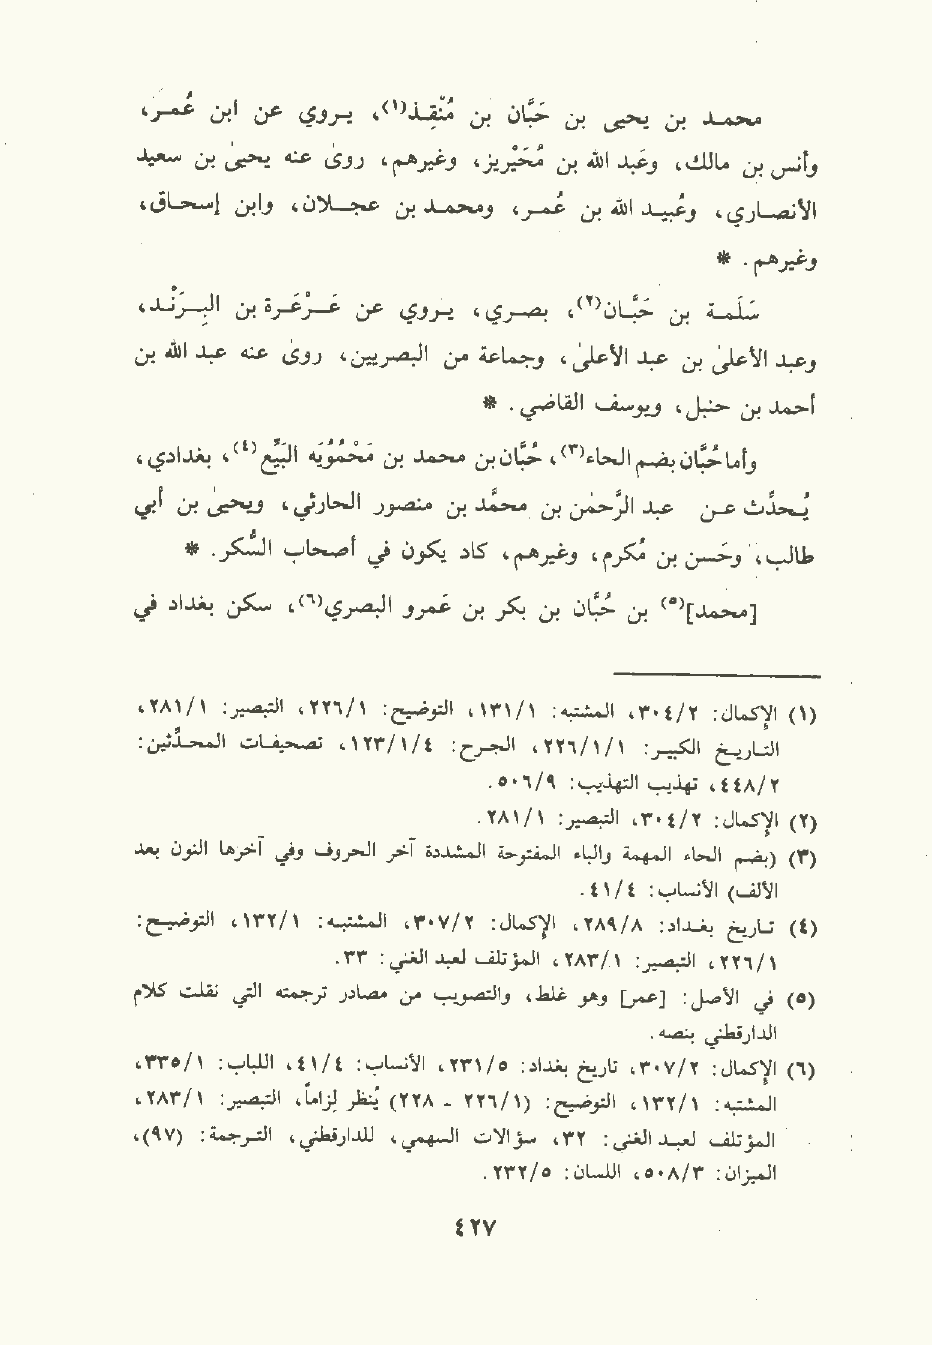 محمـد بن يحيى بن حَبَّان بن مُنْقِـذ(١)، يـروي عن ابن عُمـر،
وأنس بن مالك، وعَبد الله بن مُحَيْريز، وغيرهم، روىٰ عنه يحيىٰ بن سعيد
الأنصـاري، وعُبيـد الله بن عُمـر، ومحمـد بن عجـلان، وابن إسحـاق،
وغيرهم. *
سَلَمـة بن حَبَّـان(٢)، بصـري، يـروي عن عَـرْعَـرة بن البِـرَنْـد،
وعبد الأعلىٰ بن عبد الأعلىٰ، وجماعة من البصريين، روىٰ عنه عبد الله بن
أحمد بن حنبل، ويوسف القاضي. *
وأما حُبَّان بضم الحاء(٣)، حُبَّان بن محمد بن مَحْمُوُيَه البَيِّع(٤)، بغدادي،
يُـحدّث عـن عبد الرَّحمٰن بن محمَّد بن منصور الحارثي، ويحيىٰ بن أبي
طالب، وحَسن بن مُكرم، وغيرهم، كاد يكون في أصحاب السُكر. *
[محمد](٥) بن حُبَّان بن بكر بن عَمرو البصري(٦)، سكن بغداد في
(١) الإكمال: ٣٠٤/٢، المشتبه: ١٣١/١، التوضيح: ٢٢٦/١، التبصير: ٢٨١/١،
التـاريـخ الكبيـر: ٢٢٦/١/١، الجـرح: ١٢٣/١/٤، تصحيفـات المحـدّثين:
٤٤٨/٢، تهذيب التهذيب: ٥٠٦/٩.
(٢) الإكمال: ٣٠٤/٢، التبصير: ٢٨١/١.
(٣) (بضم الحاء المهمة والباء المفتوحة المشددة آخر الحروف وفي آخرها النون بعد
الألف) الأنساب: ٤١/٤.
(٤) تـاريخ بغـداد: ٢٨٩/٨، الإكمال: ٣٠٧/٢، المشتبـه: ١٣٢/١، التوضيـح:
٢٢٦/١، التبصير: ٢٨٣/١، المؤتلف لعبد الغني: ٣٣.
(٥) في الأصل: [عمر] وهو غلط، والتصويب من مصادر ترجمته التي نقلت كلام
الدارقطني بنصه.
(٦) الإكمال: ٣٠٧/٢، تاريخ بغداد: ٢٣١/٥، الأنساب: ٤١/٤، اللباب: ٣٣٥/١،
المشتبه: ١٣٢/١، التوضيح: (٢٢٦/١ - ٢٢٨) يُنظر لِزاماً، التبصير: ٢٨٣/١،
المؤتلف لعبـد الغني: ٣٢، سؤالات السهمي، للدارقطني، الترجمة: (٩٧)،
الميزان: ٥٠٨/٣، اللسان: ٢٣٢/٥.
٤٢٧